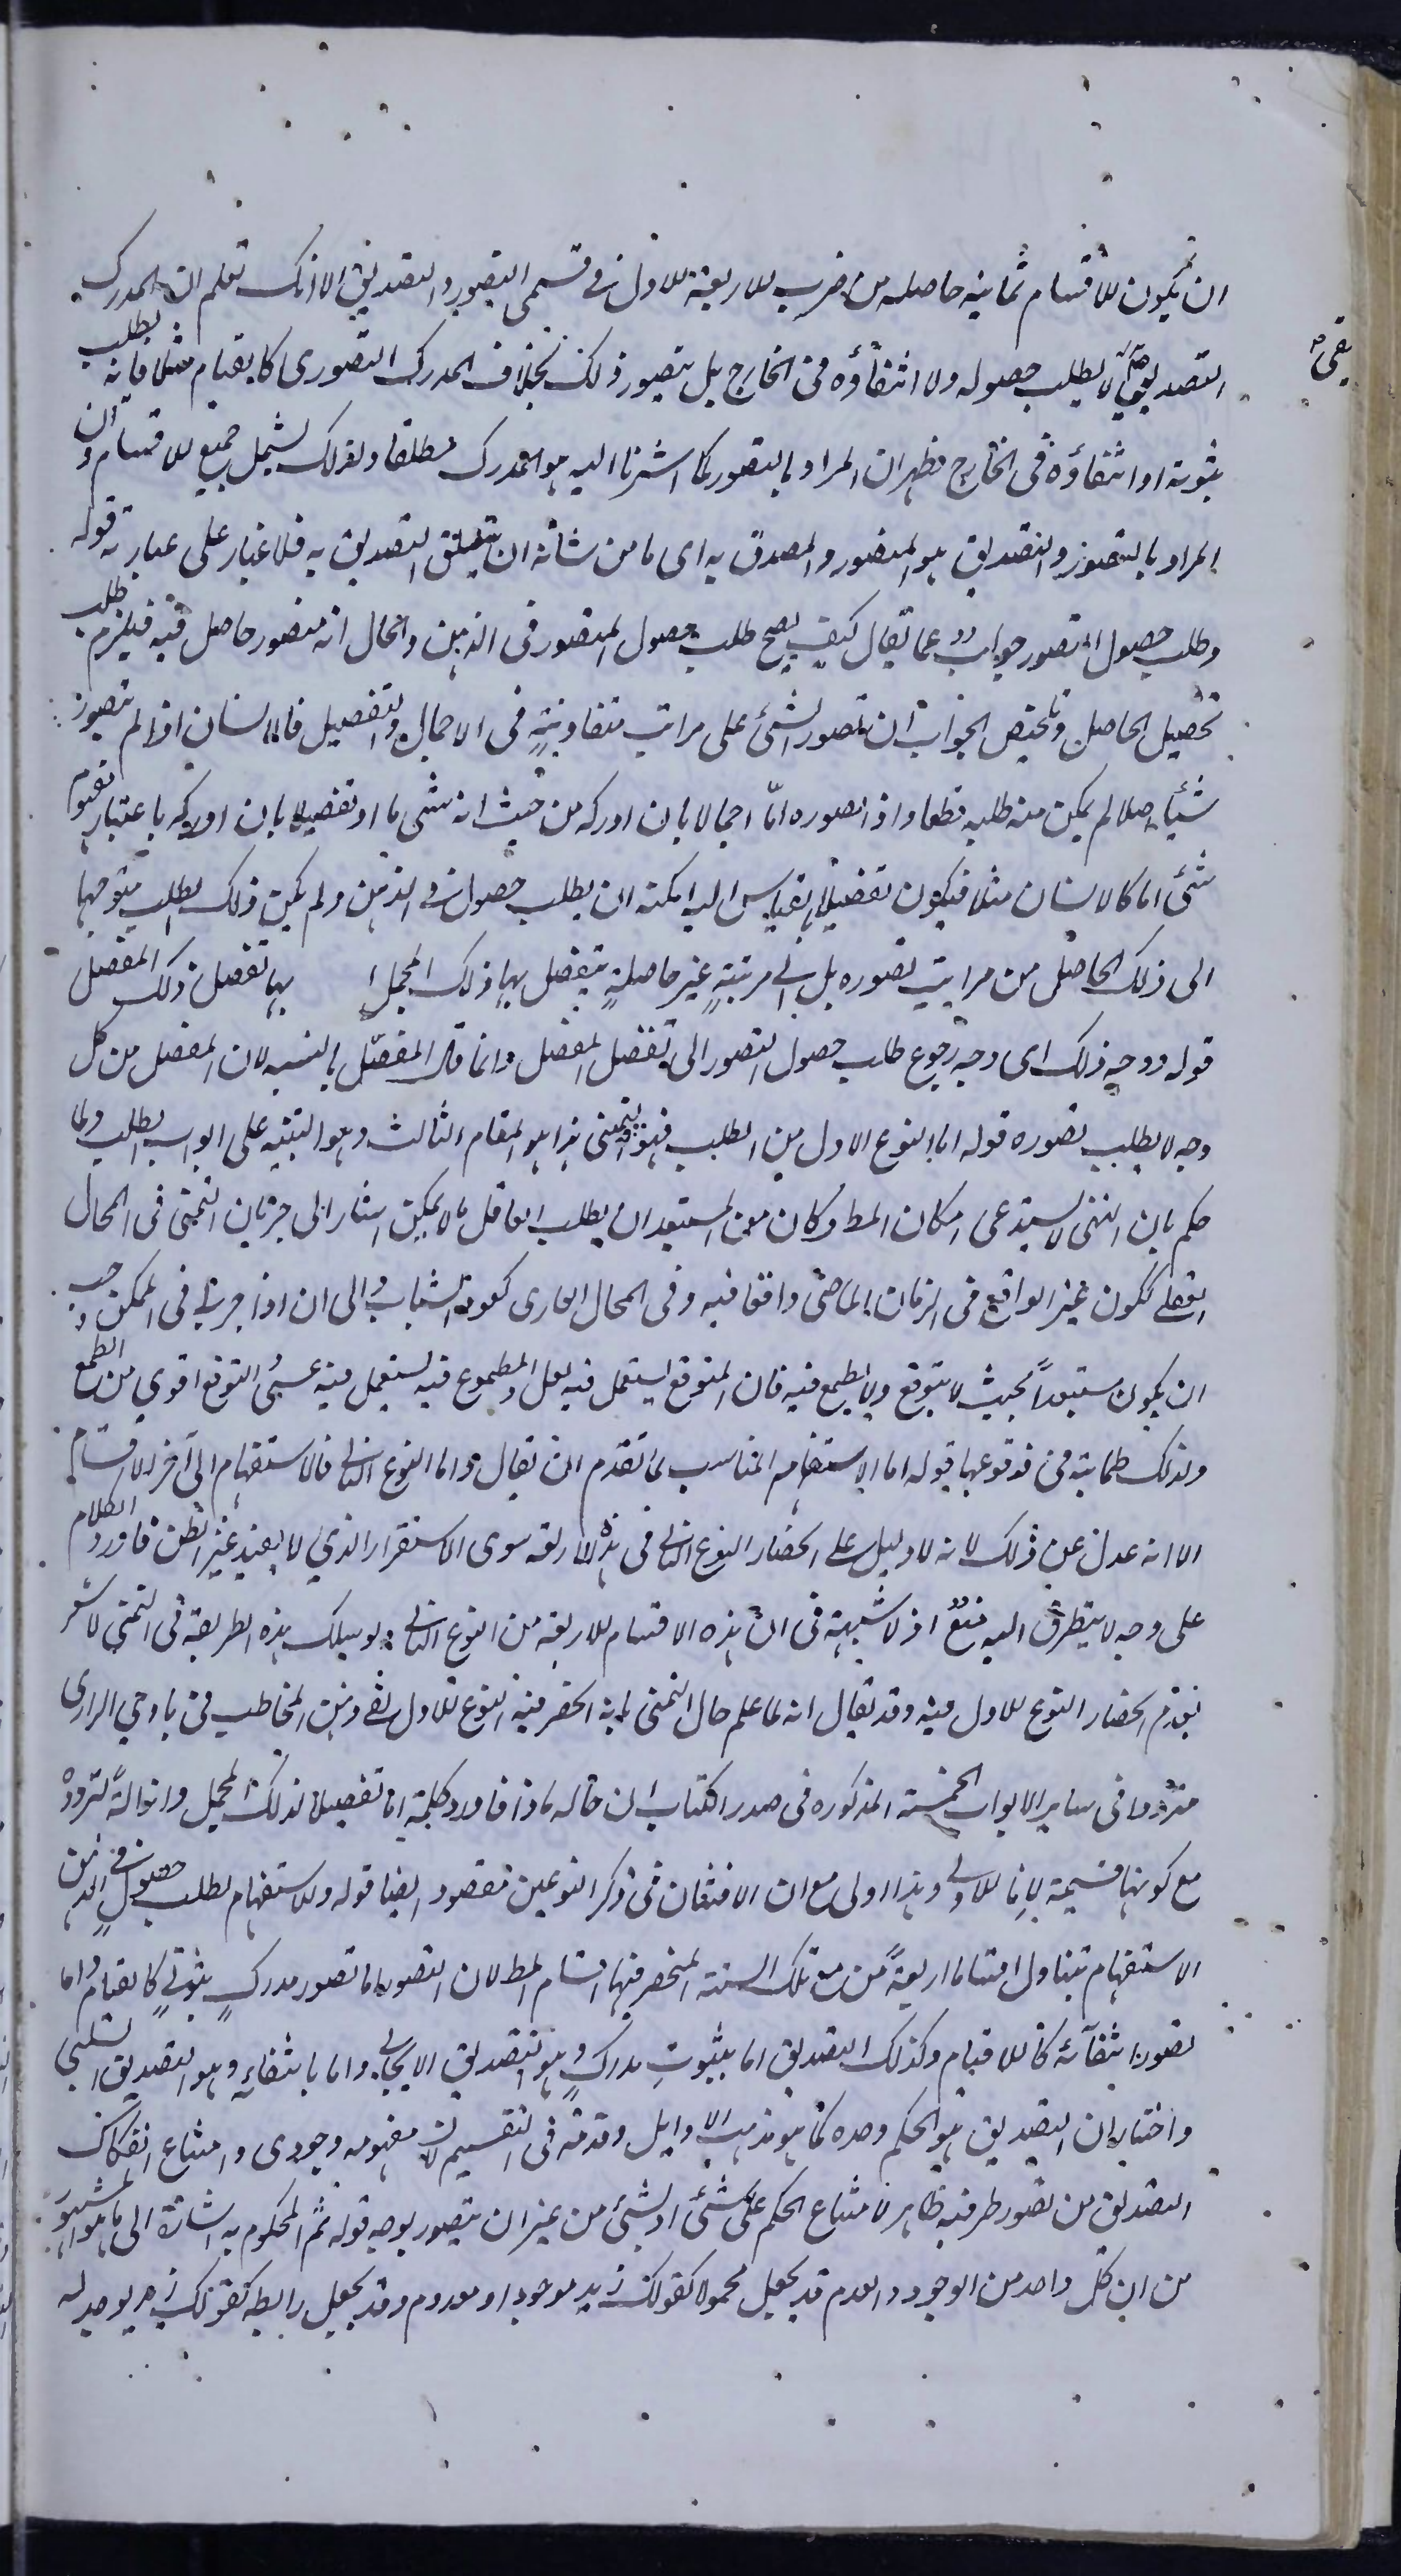 ان يكون للاقسام ثمانية حاصله من ضرب الاربعة للاول فى قسمى التصور والتصديق الا انك تعلم ان المدرك
التصديقى لا يطلب حصوله ولا انتفاؤه فى الخارج بل يتصور ذلك بخلاف المدرك التصورى كالقيام مثلا فانه يطلب
ثبوته او انتفاؤه فى الخارج فظهر ان المراد بالتصور كما اشرنا اليه هو المدرك مطلقا وبذلك يشمل جميع الاقسام وان
المراد بالتصور والتصديق هو المتصور والمصدق به اى ما من شانه ان يتعلق التصديق به فلا غبار على عبارته قوله
وطلب حصول التصور جواب عما يقال كيف يصح طلب حصول المتصور فى الذهن والحال انه متصور حاصل فيه فيلزم طلب
تحصيل الحاصل وتلخيص الجواب ان تصور الشئ على مراتب متفاوتة فى الاجمال والتفصيل فالانسان اذا لم يتصور
شيئا اصلا لم يمكن منه طلبه قطعا واذا تصوره اما اجمالا بان ادركه من حيث انه شئ ما او تفصيلا بان ادركه باعتبار مفهوم
شئ اما كالانسان مثلا فيكون تفصيلا بالقياس اليه امكنه ان يطلب حصوله فى الذهن ولم يكن ذلك الطلب متوجها
الى ذلك الحاصل من مراتب تصوره بل الى مرتبة غير حاصلة يتفصل بها ذلك المجمل او بها تفصيل ذلك المفصل
قوله ووجه ذلك اى وجه رجوع طلب حصول التصور الى تفصيل المفصل وانما قال المفصل بالنسبة لان المفصل من كل
وجه لا يطلب تصوره قوله اما النوع الاول من الطلب فهو التمنى هذا هو المقام الثالث وهو التنبيه على ابواب الطلب ولما
حكم بان التمنى لا يستدعى امكان المط وكان من المستبعد ان يطلب العاقل ما لا يمكن اشار الى جريان التمنى فى المحال
العقلى ككون غير الواقع فى الزمان الماضى واقعا فيه وفى المحال العادى كعود الشباب والى ان اذا جرى فى الممكن وجب
ان يكون مستبعدا بحيث لا يتوقع ولا يطمع فيه فان المتوقع يستعمل فيه لعل والمطموع فيه يستعمل فيه عسى والتوقع اقوى من الطمع
ولذلك طماعية فى وقوعها قوله اما الاستفهام المناسب لما تقدم ان يقال واما النوع الثانى فالاستفهام الى آخر الاقسام
الا انه عدل عن ذلك لانه لا دليل على انحصار النوع الثانى فى هذه الاربعة سوى الاستقراء الذى لا يفيد غير الظن فاورد الكلام
على وجه لا يتطرق اليه منع اذ لا شبهة فى ان هذه الاقسام الاربعة من النوع الثانى ولو سلك هذه الطريقة فى التمنى لاشعر
بعدم انحصار النوع الاول فيه وقد يقال انه لما علم حال التمنى بانه انحصر فيه النوع الاول بقى ذهن المخاطب فى بادى الراى
مترددا فى ساير الابواب الخمسة المذكورة فى صدر الكتاب ان حاله ماذا فاورد كلمة اما تفصيلا لذلك المجمل وازالة لتردده
مع كونها قسيمة لاما الاولى وهذا اولى مع ان الافتنان فى ذكر النوعين مقصود ايضا قوله والاستفهام لطلب حصول فى الذهن
الاستفهام يتناول اقساما اربعة من تلك الستة المنحصر فيها اقسام المط لان التصور اما تصور مدرك ثبوتى كالقيام واما
تصور انتفائه كاللاقيام وكذلك التصديق اما بثبوت مدرك وهو التصديق الايجابى واما بانتفائه وهو التصديق السلبى
واختار ان التصديق هو الحكم وحده كما هو مذهب الاوايل وقدمه فى التقسيم لان مفهومه وجودى وامتناع انفكاك
التصديق من تصور طرفيه ظاهر لامتناع الحكم على شئ او بشئ من غير ان يتصور بوجه قوله ثم المحكوم به اشارة الى ما هو المشهور
من ان كل واحد من الوجود والعدم قد يجعل محمولا كقولك زيد موجود او معدوم وقد يجعل رابطة كقولك زيد يوجد له